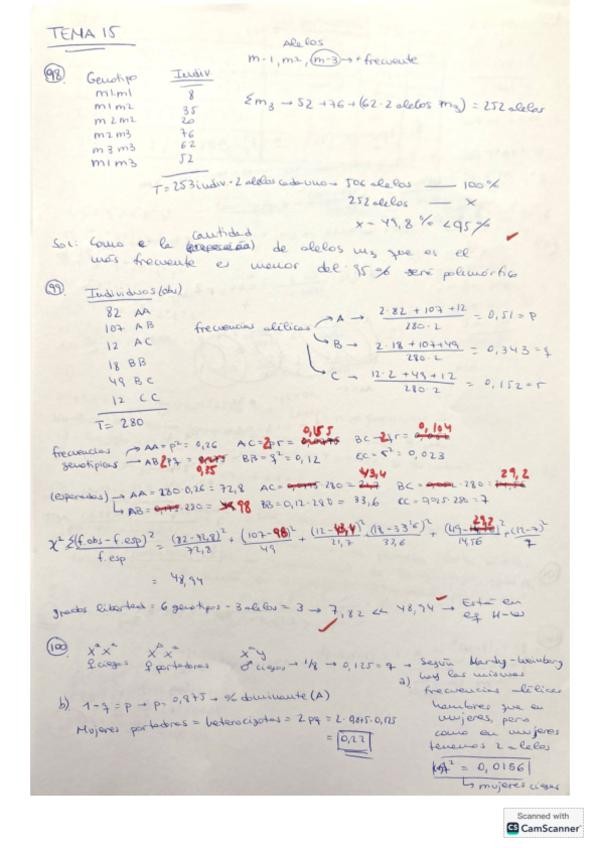 TEMA 15
98 Genotipo Indiv
Alelos
m-1, m2, m-3 → + frecuente
m1m1 8
m1m2 35
m2m2 20
m2m3 76
m3m3 62
m1m3 52
Σm3 → 52 + 76 + (62·2 alelos m3) = 252 alelos
T = 253 indiv · 2 alelos cada uno → 506 alelos — 100%
252 alelos — x
x = 49,8% < 95%
Sol: Como e la cantidad de alelos m3 que es el
más frecuente es menor del 95% será polimórfico
99 Individuos (obs)
82 AA
107 AB
12 AC
18 BB
49 BC
12 CC
T = 280
frecuencias alélicas
A → (2·82 + 107 + 12) / (280·2) = 0,51 = p
B → (2·18 + 107 + 49) / (280·2) = 0,343 = q
C → (12·2 + 49 + 12) / (280·2) = 0,152 = r
frecuencias genotípicas
AA = p² = 0,26 AC = 2pr = 0,155 BC = 2qr = 0,104
AB 2pq = 0,35 BB = q² = 0,12 CC = r² = 0,023
(esperadas) → AA = 280·0,26 = 72,8 AC = ·280 = 43,4 BC = ·280 = 29,2
AB = ·280 = 98 BB = 0,12·280 = 33,6 CC = 0,025·280 = 7
χ² Σ(f.obs - f.esp)² / f.esp = (82-72,8)² / 72,8 + (107-98)² / 49 + (12-43,4)² / 21,7 + (18-33,6)² / 33,6 + (49-29,2)² / 14,56 + (12-7)² / 7
= 48,94
grados libertad = 6 genotipos - 3 alelos = 3 → 7,82 << 48,94 → Está en eq H-W
100
♀ciegas ♀portadoras ♂ciegos → 1/8 → 0,125 = q → Según Hardy-Weinberg
a) hay las mismas
frecuencias alélicas
hombres que en
mujeres, pero
como en mujeres
tenemos 2 alelos
q² = 0,0156
mujeres ciegas
b) 1-q = p → p = 0,875 → % dominante (A)
Mujeres portadoras = heterocigotas = 2pq = 2·0,875·0,125
= 0,22
Scanned with
CS CamScanner